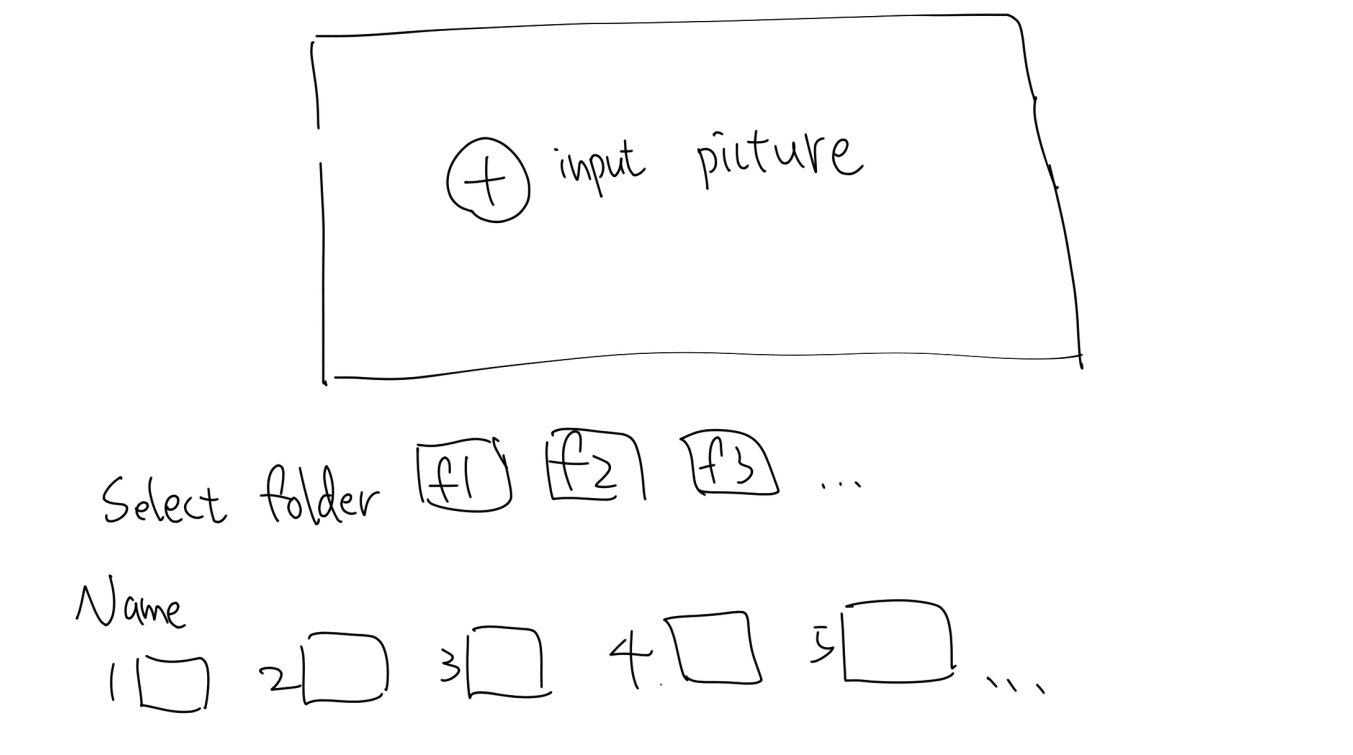 + input picture
Select folder f1 f2 f3 ...
Name
1 2 3 4. 5 ...